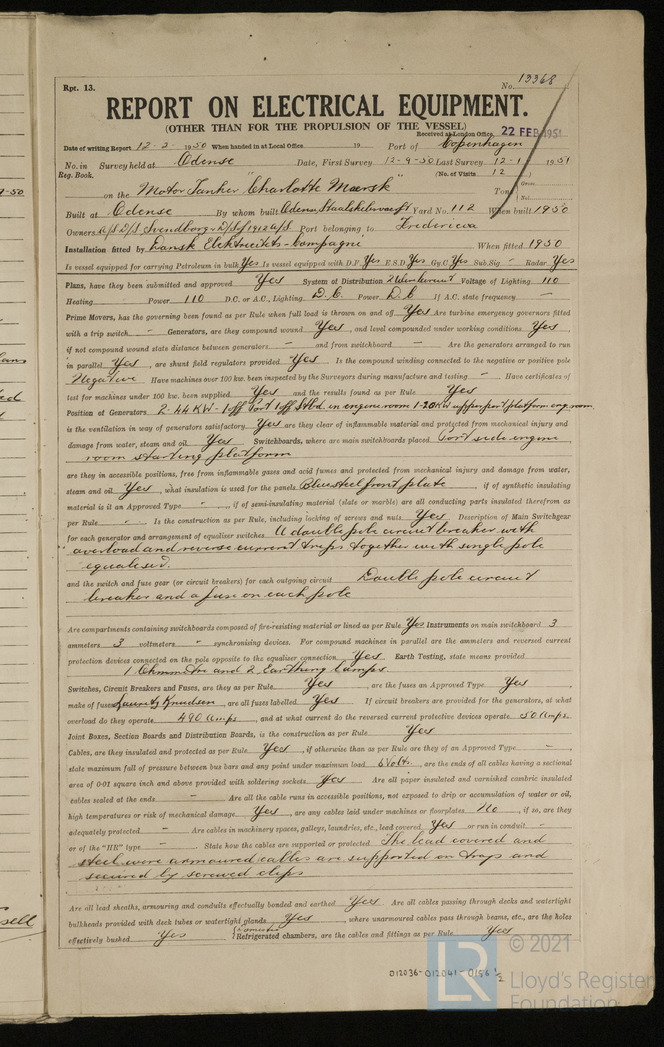 No. 13368
Rpt. 13.
REPORT ON ELECTRICAL EQUIPMENT.
(OTHER THAN FOR THE PROPULSION OF THE VESSEL)
Received at London Office 22 FEB 1951
Date of writing Report 12-2 1950 When handed in at Local Office 19 Port of Copenhagen
No. in Survey held at Odense Date, First Survey 12-9-50 Last Survey 12-1 1951
Reg. Book. (No. of Visits 12)
on the Motor Tanker "Charlotte Maersk" Tons Gross Net
Built at Odense By whom built Odense Staalskibsværft Yard No. 112 When built 1950
Owners A/S D/S Svendborg & D/S af 1912 A/S Port belonging to Fredericia
Installation fitted by Dansk Elektricitets-Compagni When fitted 1950
Is vessel equipped for carrying Petroleum in bulk Yes Is vessel equipped with D.F. Yes E.S.D. Yes Gy.C Yes Sub.Sig. - Radar Yes
Plans, have they been submitted and approved Yes System of Distribution 2 Wire Voltage of Lighting 110
Heating Power 110 D.C. or A.C., Lighting D.C. Power D.C If A.C. state frequency -
Prime Movers, has the governing been found as per Rule when full load is thrown on and off Yes Are turbine emergency governors fitted
with a trip switch - Generators, are they compound wound Yes, and level compounded under working conditions Yes,
if not compound wound state distance between generators - and from switchboard - Are the generators arranged to run
in parallel Yes, are shunt field regulators provided Yes Is the compound winding connected to the negative or positive pole
Negative Have machines over 100 kw. been inspected by the Surveyors during manufacture and testing - Have certificates of
test for machines under 100 kw. been supplied Yes and the results found as per Rule Yes
Position of Generators 2-44 KW - 1 off Port 1 off Stbd. in engine room 1-20 KW upper port platform eng. room,
is the ventilation in way of generators satisfactory Yes are they clear of inflammable material and protected from mechanical injury and
damage from water, steam and oil Yes Switchboards, where are main switchboards placed Port side engine
room starting platform
are they in accessible positions, free from inflammable gases and acid fumes and protected from mechanical injury and damage from water,
steam and oil Yes, what insulation is used for the panels Blue steel front plate, if of synthetic insulating
material is it an Approved Type -, if of semi-insulating material (slate or marble) are all conducting parts insulated therefrom as
per Rule - Is the construction as per Rule, including locking of screws and nuts Yes Description of Main Switchgear
for each generator and arrangement of equaliser switches A double pole circuit breaker with
overload and reverse current trips together with single pole
equaliser.
and the switch and fuse gear (or circuit breakers) for each outgoing circuit Double pole circuit
breaker and a fuse on each pole
Are compartments containing switchboards composed of fire-resisting material or lined as per Rule Yes Instruments on main switchboard 3
ammeters 3 voltmeters - synchronising devices. For compound machines in parallel are the ammeters and reversed current
protection devices connected on the pole opposite to the equaliser connection Yes Earth Testing, state means provided
1 Ohmmeter and 2 Earthing lamps
Switches, Circuit Breakers and Fuses, are they as per Rule Yes, are the fuses an Approved Type Yes,
make of fuses Lauritz Knudsen, are all fuses labelled Yes If circuit breakers are provided for the generators, at what
overload do they operate 490 Amps, and at what current do the reversed current protective devices operate 50 Amps.
Joint Boxes, Section Boards and Distribution Boards, is the construction as per Rule Yes
Cables, are they insulated and protected as per Rule Yes, if otherwise than as per Rule are they of an Approved Type -,
state maximum fall of pressure between bus bars and any point under maximum load 6 Volt., are the ends of all cables having a sectional
area of 0·01 square inch and above provided with soldering sockets Yes Are all paper insulated and varnished cambric insulated
cables sealed at the ends - Are all the cable runs in accessible positions, not exposed to drip or accumulation of water or oil,
high temperatures or risk of mechanical damage Yes, are any cables laid under machines or floorplates No, if so, are they
adequately protected - Are cables in machinery spaces, galleys, laundries, etc., lead covered Yes or run in conduit -
or of the "HR" type - State how the cables are supported or protected The lead covered and
steel wire armoured cables are supported on trays and
secured by screwed clips
Are all lead sheaths, armouring and conduits effectually bonded and earthed Yes Are all cables passing through decks and watertight
bulkheads provided with deck tubes or watertight glands Yes, where unarmoured cables pass through beams, etc., are the holes
effectively bushed Yes Domestic Refrigerated chambers, are the cables and fittings as per Rule Yes
012036-012041-0156 1/2
LR © 2021
Lloyd's Register
Foundation